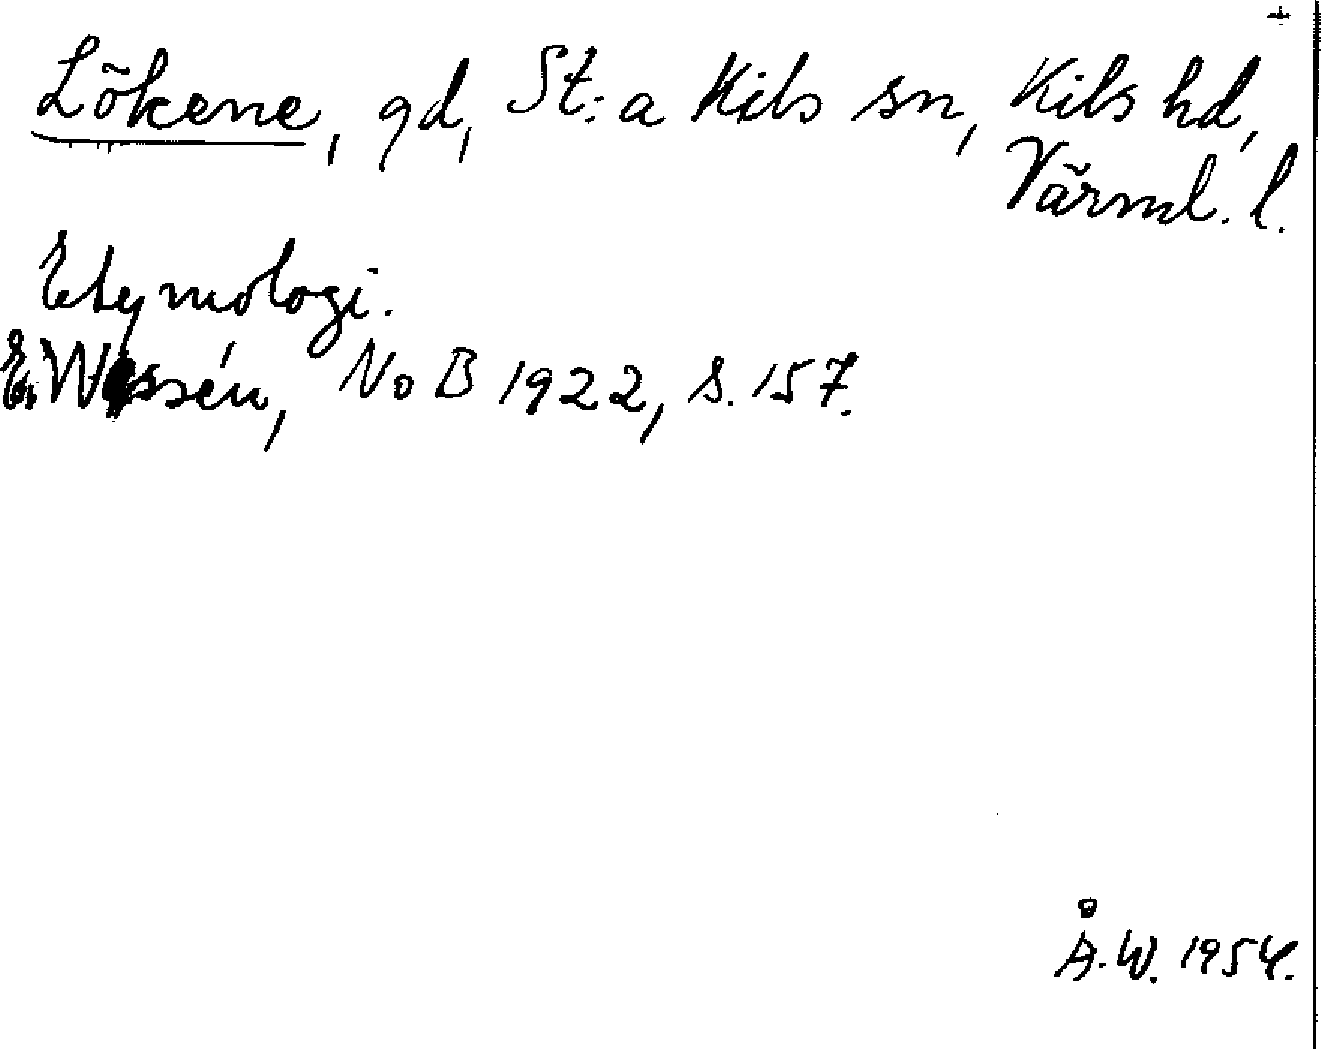 +
Lökene, gd, St:a Kils sn, Kils hd,
Värml. l.
Etymologi.
E. Wessén, NoB 1922, S. 157.
Å.W. 1954.